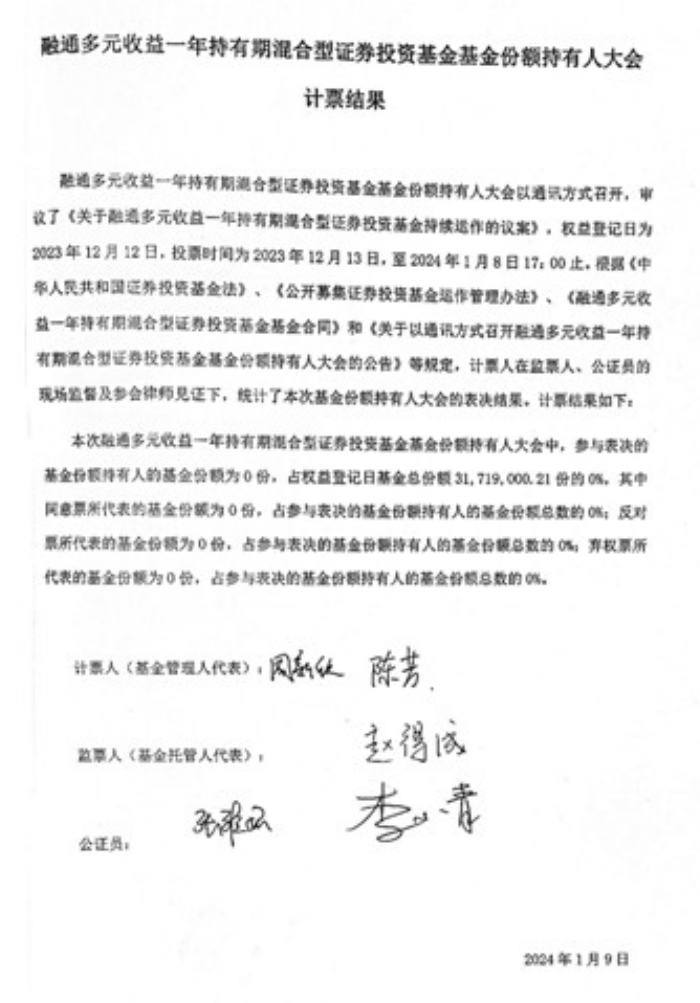 融通多元收益一年持有期混合型证券投资基金基金份额持有人大会
计票结果
融通多元收益一年持有期混合型证券投资基金基金份额持有人大会以通讯方式召开，审
议了《关于融通多元收益一年持有期混合型证券投资基金持续运作的议案》，权益登记日为
2023年12月12日，投票时间为2023年12月13日，至2024年1月8日17：00止。根据《中
华人民共和国证券投资基金法》、《公开募集证券投资基金运作管理办法》、《融通多元收
益一年持有期混合型证券投资基金基金合同》和《关于以通讯方式召开融通多元收益一年持
有期混合型证券投资基金基金份额持有人大会的公告》等规定，计票人在监票人、公证员的
现场监督及参会律师见证下，统计了本次基金份额持有人大会的表决结果。计票结果如下：
本次融通多元收益一年持有期混合型证券投资基金基金份额持有人大会中，参与表决的
基金份额持有人的基金份额为0份，占权益登记日基金总份额31,719,000.21份的0%。其中
同意票所代表的基金份额为0份，占参与表决的基金份额持有人的基金份额总数的0%；反对
票所代表的基金份额为0份，占参与表决的基金份额持有人的基金份额总数的0%；弃权票所
代表的基金份额为0份，占参与表决的基金份额持有人的基金份额总数的0%。
计票人（基金管理人代表）： 陈芳
监票人（基金托管人代表）： 赵得成
公证员：
2024年1月9日